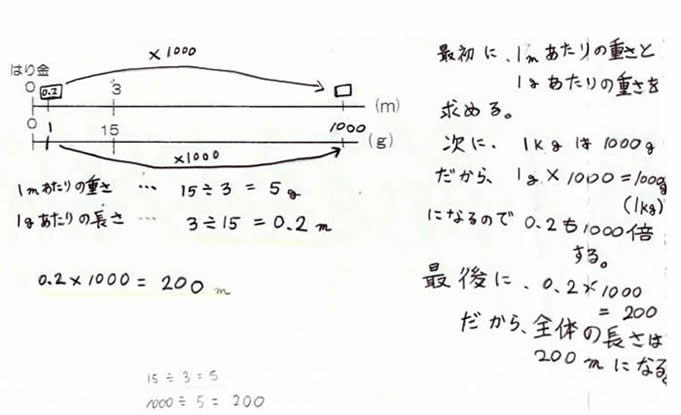 ×1000
はり金
0 0.2 3 □ (m)
0 1 15 1000 (g)
×1000
1mあたりの重さ … 15÷3=5g
1gあたりの長さ … 3÷15=0.2m
0.2×1000=200m
15÷3=5
1000÷5=200
最初に、1mあたりの重さと
1gあたりの重さを
求める。
次に、1kgは1000g
だから、1g×1000=1000g
(1kg)
になるので0.2も1000倍
する。
最後に、0.2×1000
=200
だから、全体の長さは
200mになる。